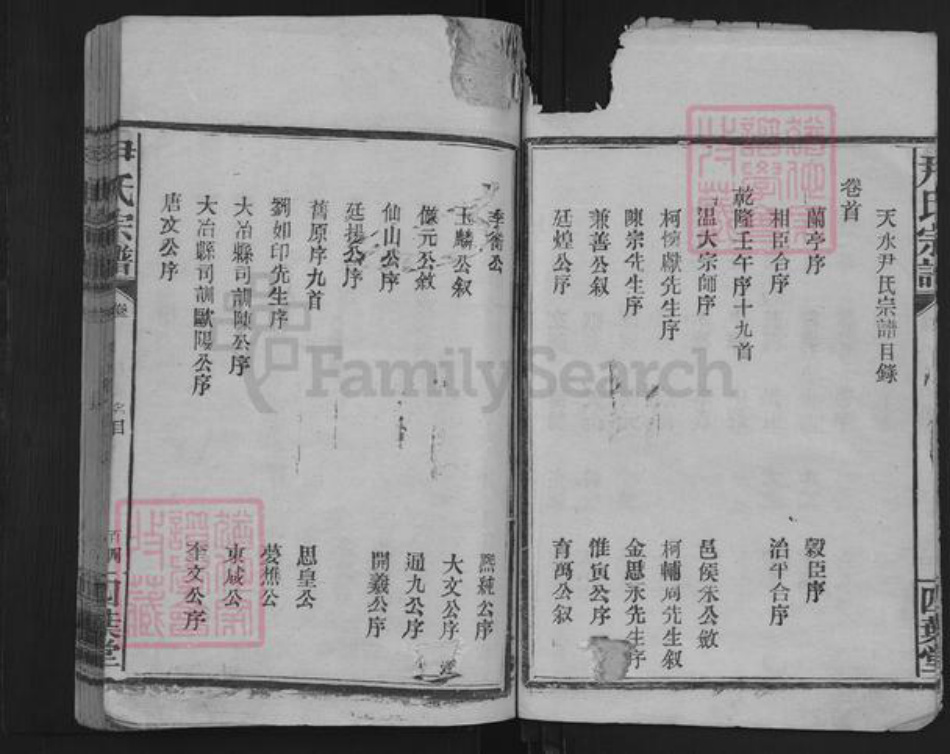 天水尹氏宗譜目錄
卷首
蘭亭序
穀臣序
相臣合序
治平合序
乾隆壬午序十九首
温大宗師序
邑侯朱公敘
柯懷獻先生序
柯輔周先生叙
陳宗先生序
金思永先生序
兼善公叙
惟寅公序
廷煌公序
育萬公叙
季翁公
熙純公序
玉麟公叙
大文公序
儆元公敘
通九公序
仙山公序
開羲公序
廷揚公序
舊原序九首
劉如印先生序
思皇公
大冶縣司訓陳公序
夢樵公
大冶縣司訓歐陽公序
東咸公
唐文公序
奎文公序
尹氏宗譜
卷
目
四美堂
尹氏宗譜
四美堂
FamilySearch